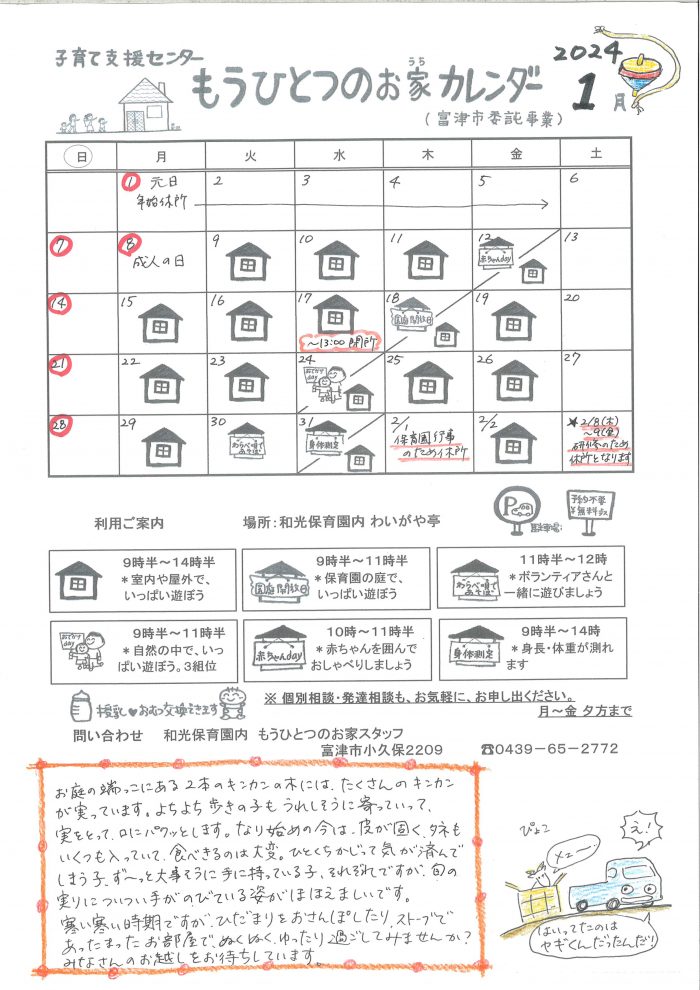 子育て支援センター
もうひとつのお家カレンダー
うち
2024
1月
(富津市委託事業)
日 月 火 水 木 金 土
1 元日 2 3 4 5 6
年始休所
7 8 9 10 11 12 13
成人の日
赤ちゃんday
14 15 16 17 18 19 20
園庭開放日
〜13:00 閉所
21 22 23 24 25 26 27
おでかけday
28 29 30 31 2/1 2/2
わらべ唄であそぼ
身体測定
保育園行事
のため休所
★2/8(木)
〜9(金)
研修のため
休所となります
利用ご案内 場所：和光保育園内 わいがや亭
P
駐車場
予約不要
¥無料
9時半〜14時半
＊室内や屋外で、
いっぱい遊ぼう
園庭開放日
9時半〜11時半
＊保育園の庭で、
いっぱい遊ぼう
わらべ唄であそぼ
11時半〜12時
＊ボランティアさんと
一緒に遊びましょう
おでかけday
9時半〜11時半
＊自然の中で、いっ
ぱい遊ぼう。3組位
赤ちゃんday
10時〜11時半
＊赤ちゃんを囲んで
おしゃべりしましょう
身体測定
9時半〜14時
＊身長・体重が測れ
ます
授乳♥おむつ交換できます
※ 個別相談・発達相談も、お気軽に、お申し出ください。
月〜金 夕方まで
問い合わせ 和光保育園内 もうひとつのお家スタッフ
富津市小久保2209 ☎0439－65－2772
お庭の端っこにある2本のキンカンの木には、たくさんのキンカン
が実っています。よちよち歩きの子もうれしそうに寄っていって、
実をとって、口にパクッとします。なり始めの今は、皮が固く、タネも
いくつも入っていて、食べきるのは大変。ひとくちかじって気が済んで
しまう子、ず〜っと大事そうに手に持っている子、それぞれですが、旬の
実りについつい手がのびている姿がほほえましいです。
寒い寒い時期ですが、ひだまりをおさんぽしたり、ストーブで
あったまったお部屋で、ぬくぬく、ゆったり過ごしてみませんか？
みなさんのお越しをお待ちしています。
ぴょこ
メェー
え！
はいってたのは
ヤギくんだったんだ！！